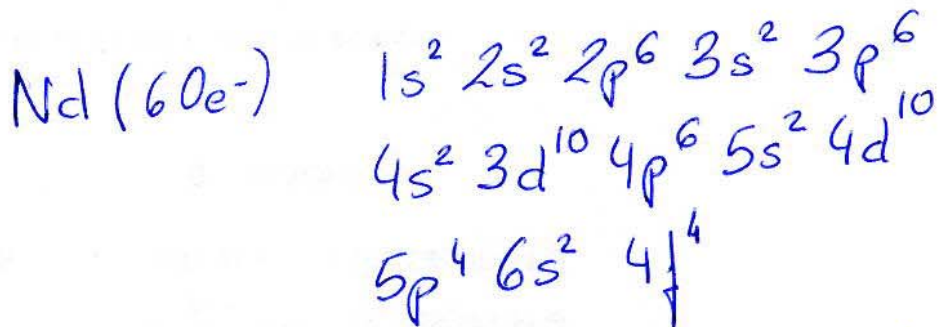 Nd (60e⁻) 1s² 2s² 2p⁶ 3s² 3p⁶
4s² 3d¹⁰ 4p⁶ 5s² 4d¹⁰
5p⁴ 6s² 4f⁴